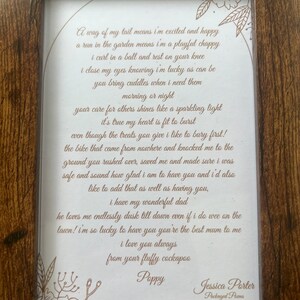 A wag of my tail means i'm excited and happy
a run in the garden means i'm a playful chappy
i curl in a ball and rest on your knee
i close my eyes knowing i'm lucky as can be
you bring cuddles when i need them
morning or night
your care for others shines like a sparkling light
it's true my heart is fit to burst
even though the treats you give i like to bury first!
the bike that came from nowhere and knocked me to the
ground you rushed over, saved me and made sure i was
safe and sound how glad i am to have you and i'd also
like to add that as well as having you,
i have my wonderful dad
he loves me endlessly dusk till dawn even if i do wee on the
lawn! i'm so lucky to have you you're the best mum to me
i love you always
from your fluffy cockapoo
Poppy
Jessica Porter
Packaged Poems